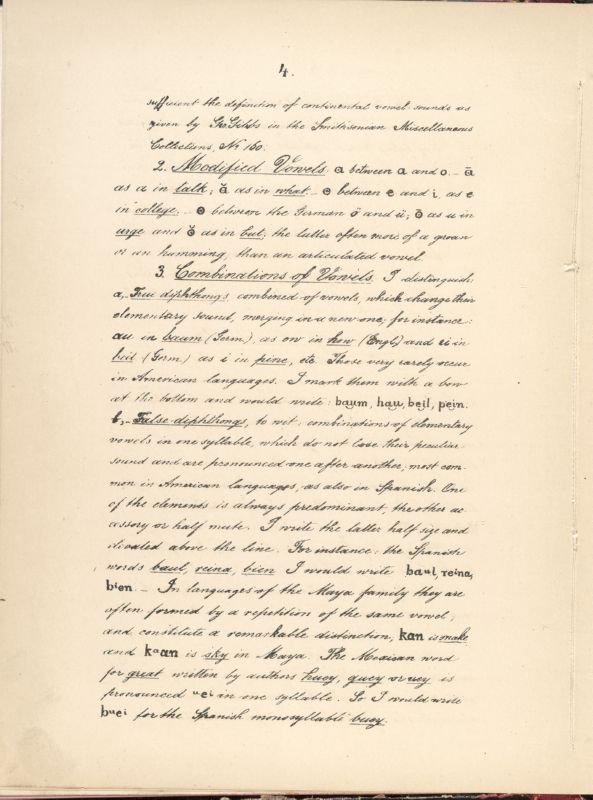 4.
sufficient the definition of continental vowel sounds as
given by Geo. Gibbs in the Smithsonian Miscellaneous
Collections, No 160.
2. Modified Vowels. a between a and o. – ā
as a in talk; ă as in what. – e between e and i, as e
in college. – ɵ between the German ö and ü; ō as u in
urge and ŏ as in but; the latter often more of a groan
or an humming, than an articulated vowel.
3. Combinations of Vowels. I distinguish
a, True diphthongs combined of vowels, which change their
elementary sound, merging in a new one; for instance:
au in baum (Germ.), as ow in how (Engl.) and ei in
beil (Germ.) as i in pine, etc. Those very rarely occur
in American languages. I mark them with a bow
at the bottom and would write: ba͜um, ha͜u, be͜il, pe͜in.
b,– False diphthongs, to wit: combinations of elementary
vowels in one syllable, which do not lose their peculiar
sound and are pronounced one after another, most com-
mon in American languages, as also in Spanish. One
of the elements is always predominant, the other ac-
cessory or half mute. I write the latter half size and
divated above the line. For instance: the Spanish
words baul, reina, bien I would write baul, reina,
bⁱen. – In languages of the Maya family they are
often formed by a repetition of the same vowel,
and constitute a remarkable distinction, kan is make
and kᵃan is sky in Maya. The Mexican word
for great written by authors huey, quey or uey is
pronounced ᵘeⁱ in one syllable. So I would write
bᵘeⁱ for the Spanish monosyllable buey.